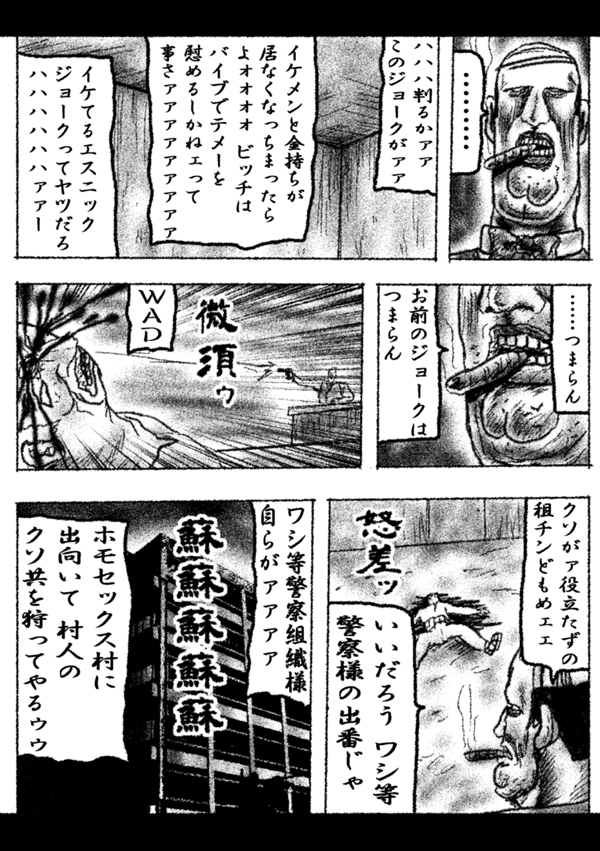 ………
ハハハ判るかァァ
このジョークがァァ
イケメンと金持ちが
居なくなっちまったら
よォオオオ ビッチは
バイブでテメーを
慰めるしかねェって
事さァァァァァァァ
イケてるエスニック
ジョークってヤツだろ
ハハハハハハァァー
……つまらん
お前のジョークは
つまらん
微須ゥ
WAD
クソがァ役立たずの
租チンどもめェエ
怒差ッ
いいだろう ワシ等
警察様の出番じゃ
ワシ等警察組織様
自らがァァァァ
蘇蘇蘇蘇蘇
ホモセックス村に
出向いて 村人の
クソ共を狩ってやるゥゥ